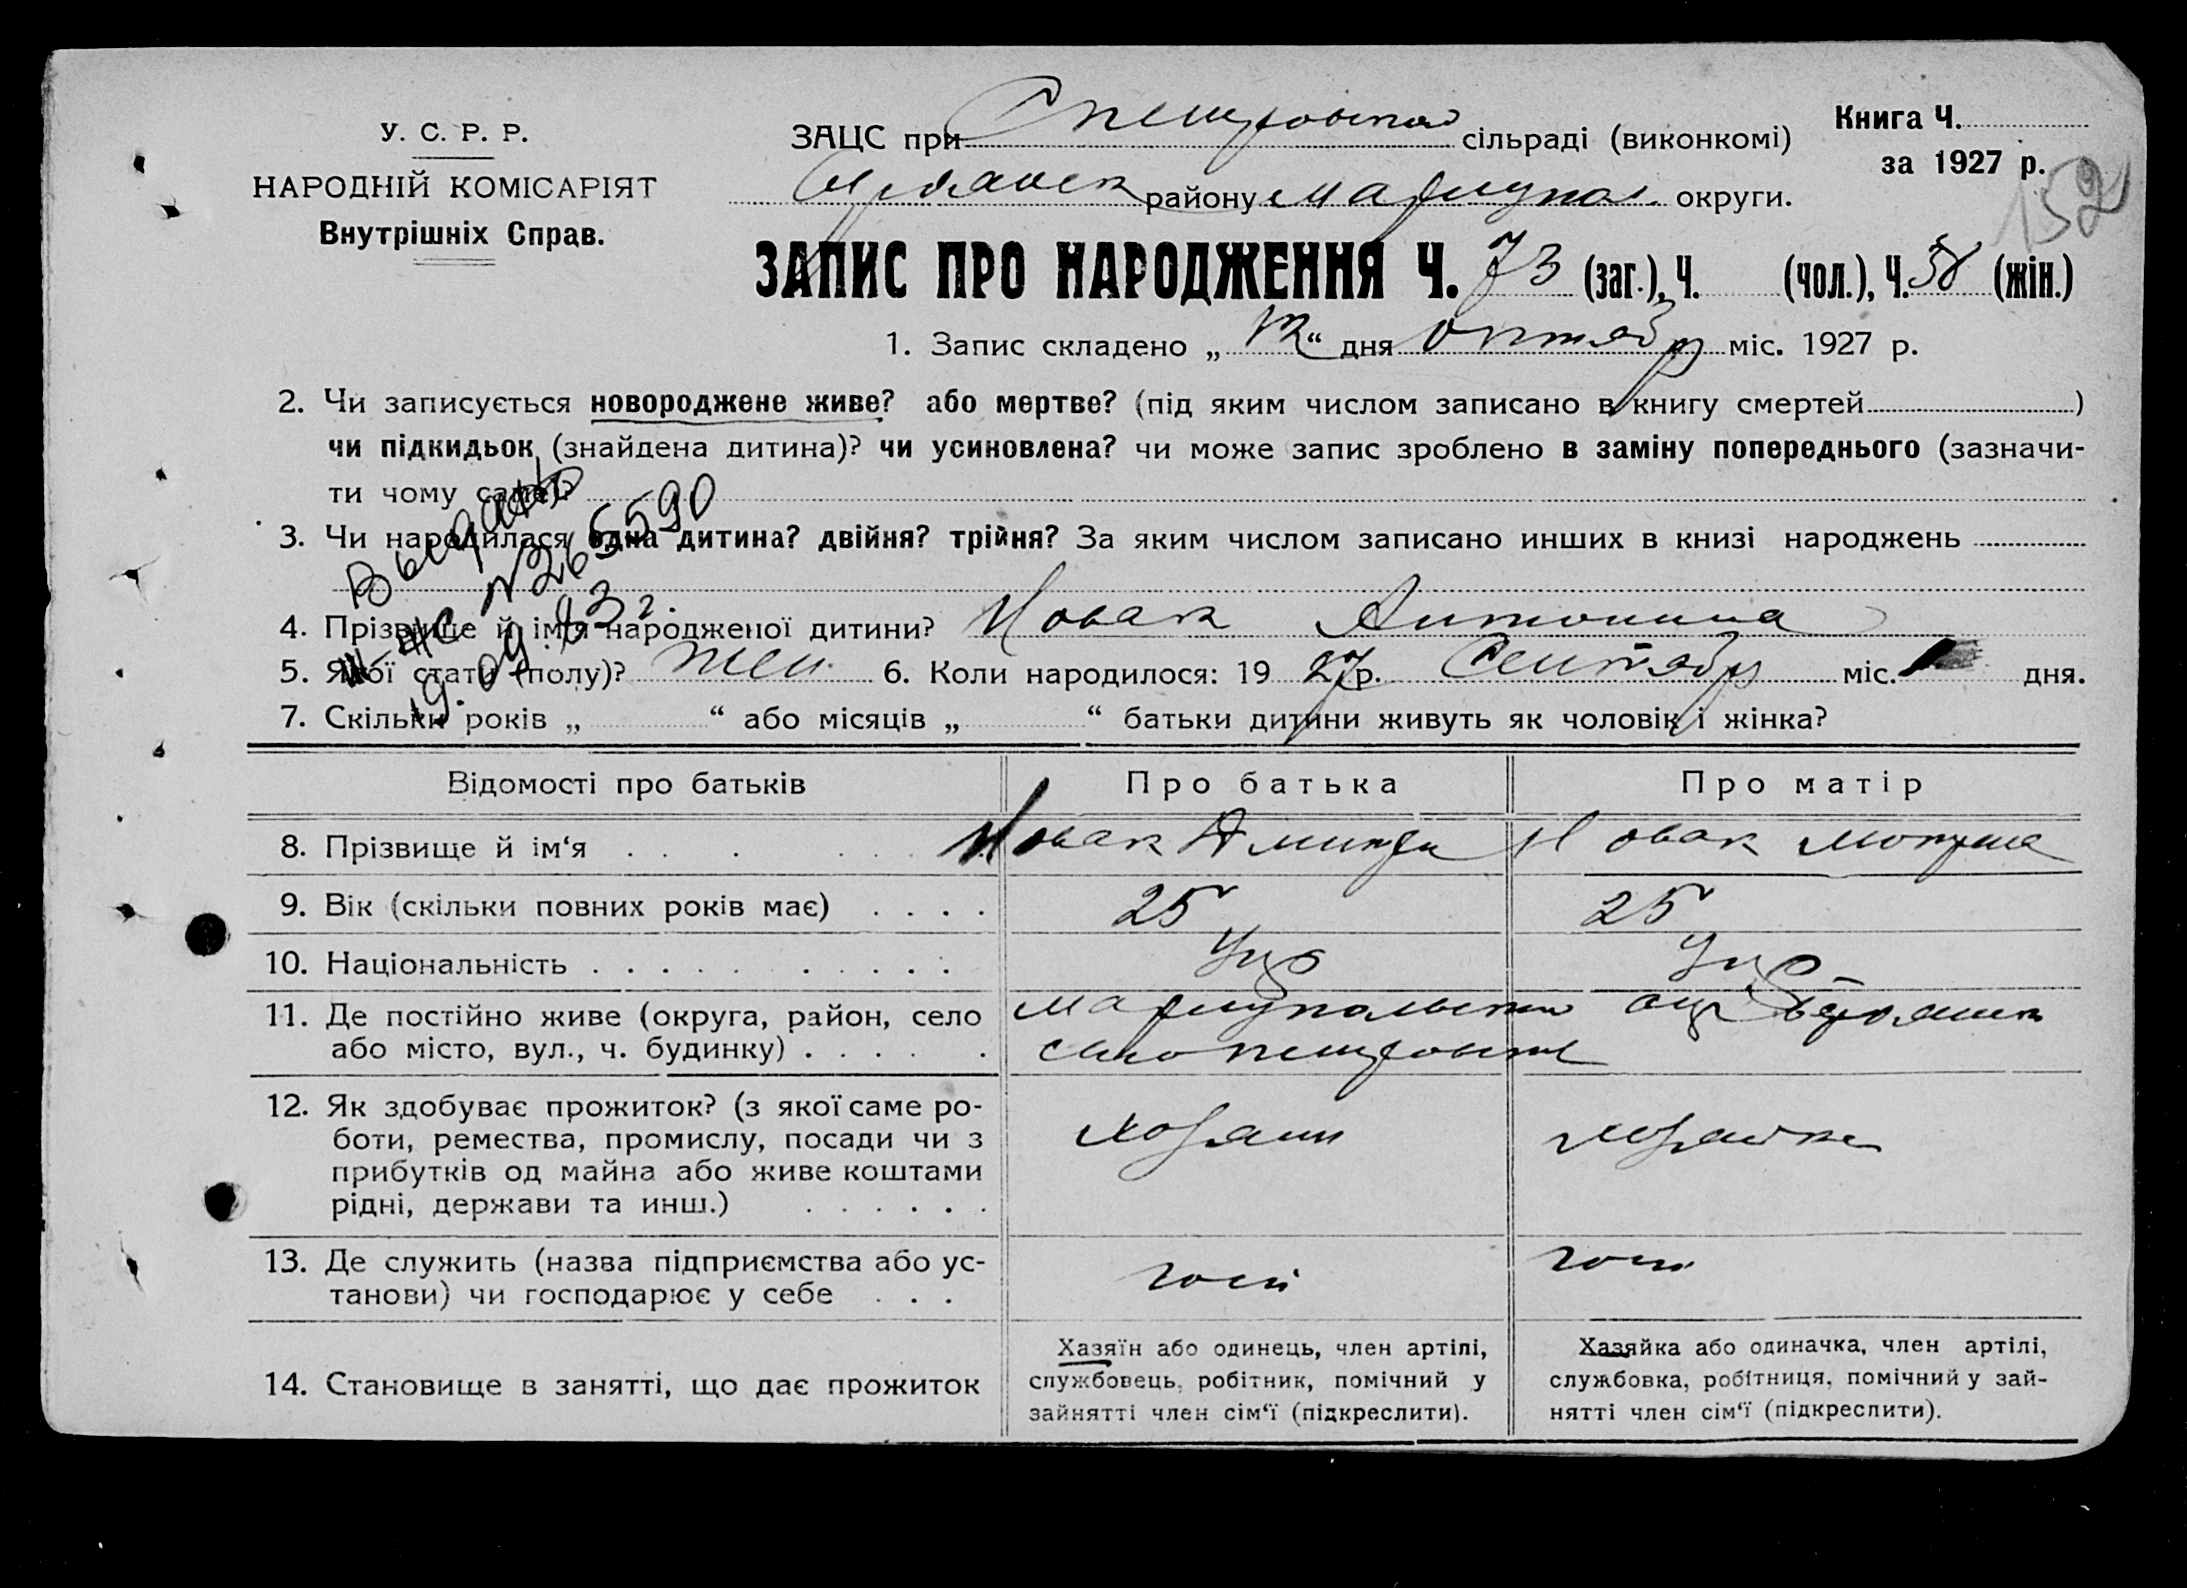 У. С. Р. Р.
НАРОДНІЙ КОМІСАРІЯТ
Внутрішніх Справ.
ЗАЦС при сільраді (виконкомі)
району Мариупол. округи.
Книга Ч.
за 1927 р.
152
ЗАПИС ПРО НАРОДЖЕННЯ Ч. 73 (заг.), Ч. (чол.), Ч. 38 (жін.)
1. Запис складено „ 12 “ дня октябр міс. 1927 р.
2. Чи записується новороджене живе? або мертве? (під яким числом записано в книгу смертей )
чи підкидьок (знайдена дитина)? чи усиновлена? чи може запис зроблено в заміну попереднього (зазначи-
ти чому саме)?
3. Чи народилася одна дитина? двійня? трійня? За яким числом записано инших в книзі народжень
4. Прізвище й ім‘я народженої дитини? Новак Антонина
5. Якої статі (полу)? жен. 6. Коли народилося: 19 27 р. Сентябр міс. дня.
7. Скільки років „ “ або місяців „ “ батьки дитини живуть як чоловік і жінка?
Выдано
№ 265590
19.09.83 г.
Відомості про батьків Про батька Про матір
8. Прізвище й ім‘я Новак Дмитри Новак Мотрина
9. Вік (скільки повних років має) 25 25
10. Національність Укр Укр
11. Де постійно живе (округа, район, село Мариупольски окр
або місто, вул., ч. будинку) село
12. Як здобуває прожиток? (з якої саме ро-
боти, ремества, промислу, посади чи з хозяин хозяйка
прибутків од майна або живе коштами
рідні, держави та инш.)
13. Де служить (назва підприємства або ус-
танови) чи господарює у себе
14. Становище в занятті, що дає прожиток
Хазяїн або одинець, член артілі,
службовець, робітник, помічний у
зайнятті член сім‘ї (підкреслити).
Хазяйка або одиначка, член артілі,
службовка, робітниця, помічний у зай-
нятті член сім‘ї (підкреслити).